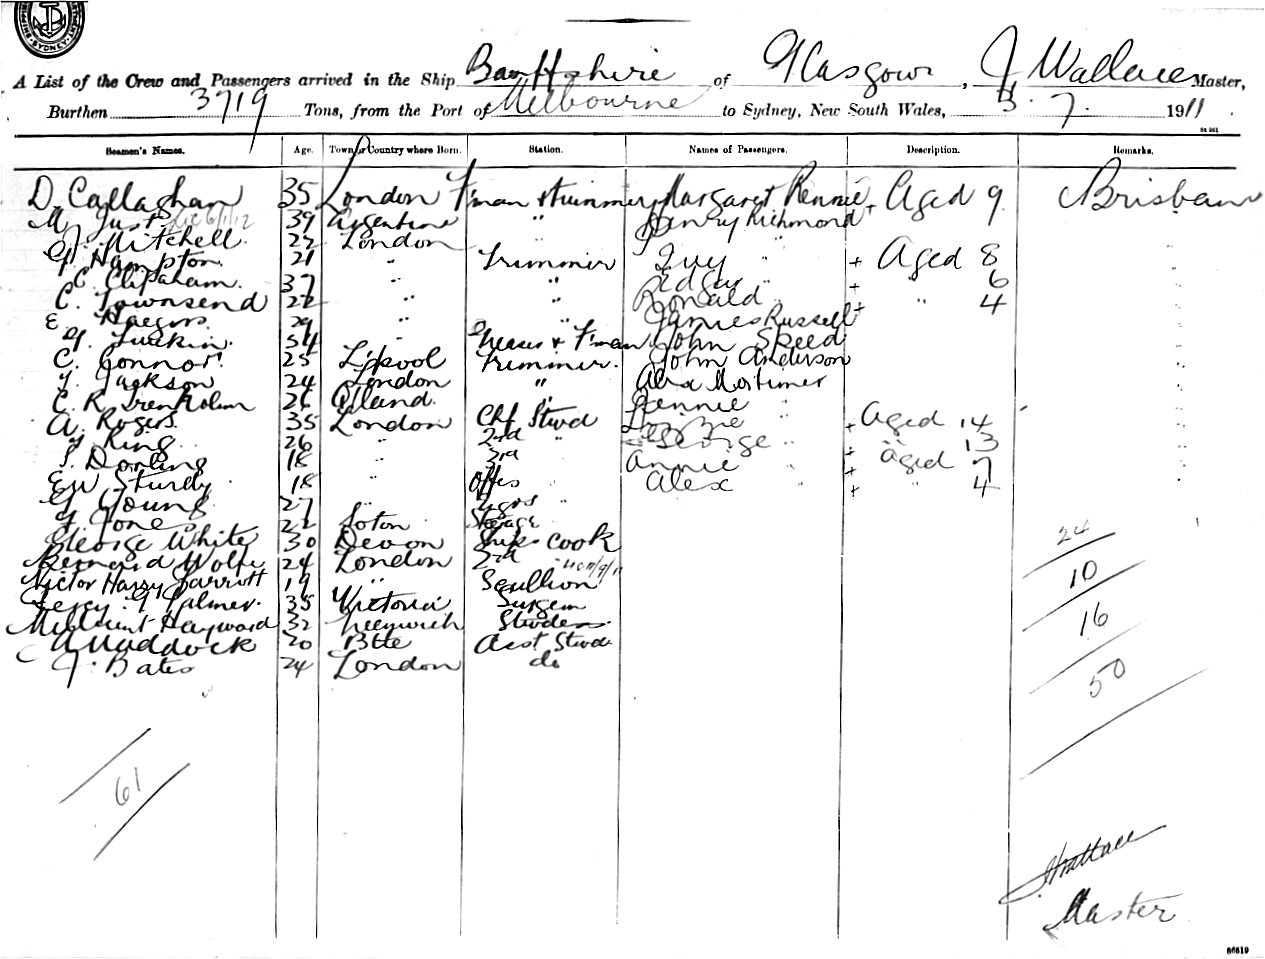 SHIPPING SYDNEY
A List of the Crew and Passengers arrived in the Ship Banffshire of Glasgow, J Wallace Master,
Burthen 3719 Tons, from the Port of Melbourne to Sydney, New South Wales, 3. 7. 1911
Seamen's Names. Age. Town or Country where Born. Station. Names of Passengers. Description. Remarks.
D. Callaghan 35 London F'man & trimmer Margaret Rennie + Aged 9 Brisbane
M. Just 39 Argentine " Henry Richmond "
J. Mitchell 22 London "
Hampton 21 " Trimmer Ivy " + Aged 8 "
C. Clipsham. 37 " " Edgar " + " 6 "
C. Townsend 22 " " Ronald " + " 4 "
E " " James Russell "
Luckin. 54 " Greaser & F'man John Speed "
C. Connor 25 L'pool Trimmer. John Anderson "
Jackson 24 London " Alex Mortimer "
C. R. Trenholm " Jennie "
A. Rogers 35 London Chf Stwd " + Aged 14 "
King 26 " 2nd " George " + " 13 "
Dorling 18 " 3rd Annie " + aged 7 "
E W Sturdy 18 " Offrs " Alex " + " 4 "
Young 27 " "
Jones 22 Soton Steerage
George White 30 Devon Ships Cook 24
Bernard Wolfe 24 London 2nd "
Victor Harry Garrott 19 " Scullion 10
Percy Palmer. 35 Victoria Surgeon
Millicent Hayward 32 Greenwich Stwdess. 16
A Maddock 20 Btte Asst Stwd
J. Bates 24 London do 50
61
J Wallace
Master
86519